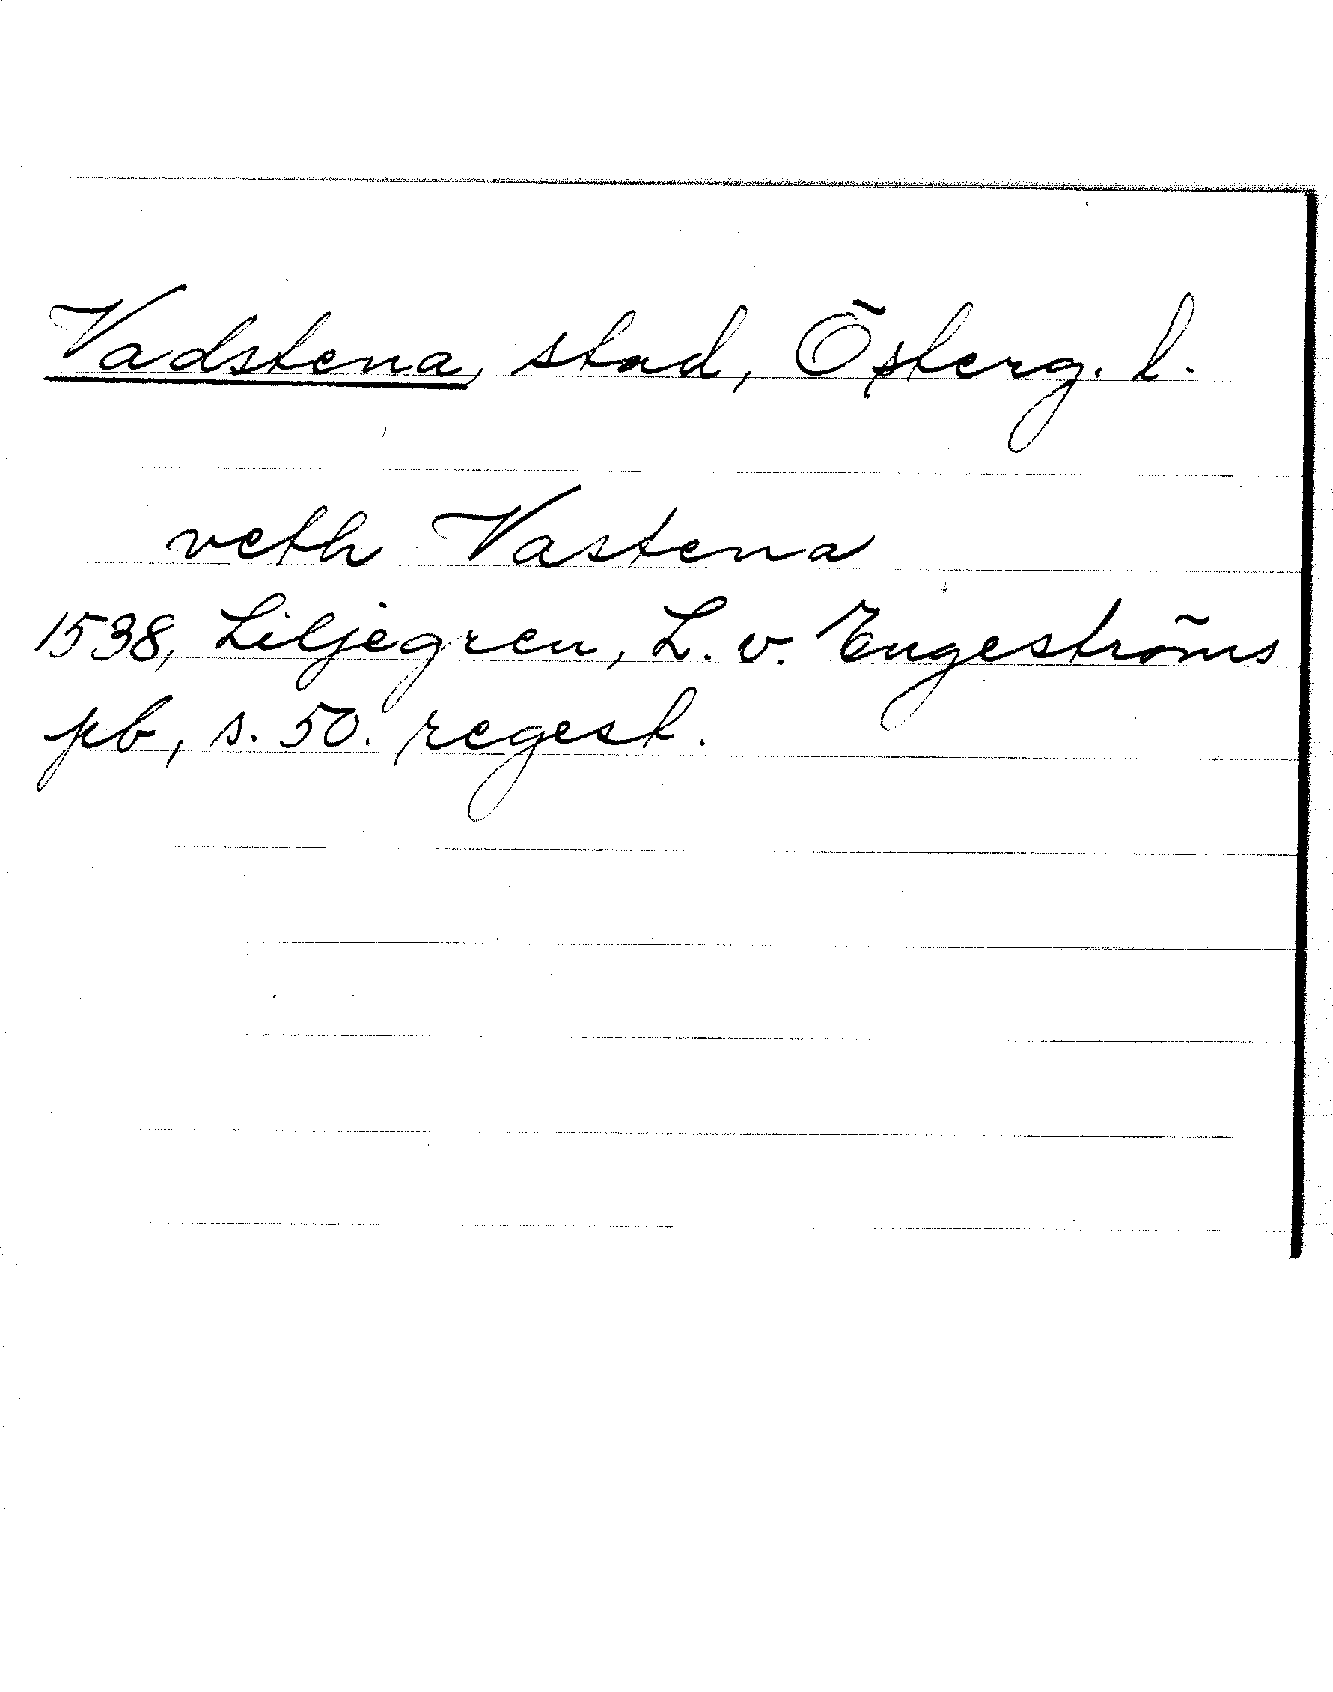 Vadstena, stad, Österg. l.
veth Vastena
1538, Liljegren, L. v. Engeströms
pb, s. 50. regest.